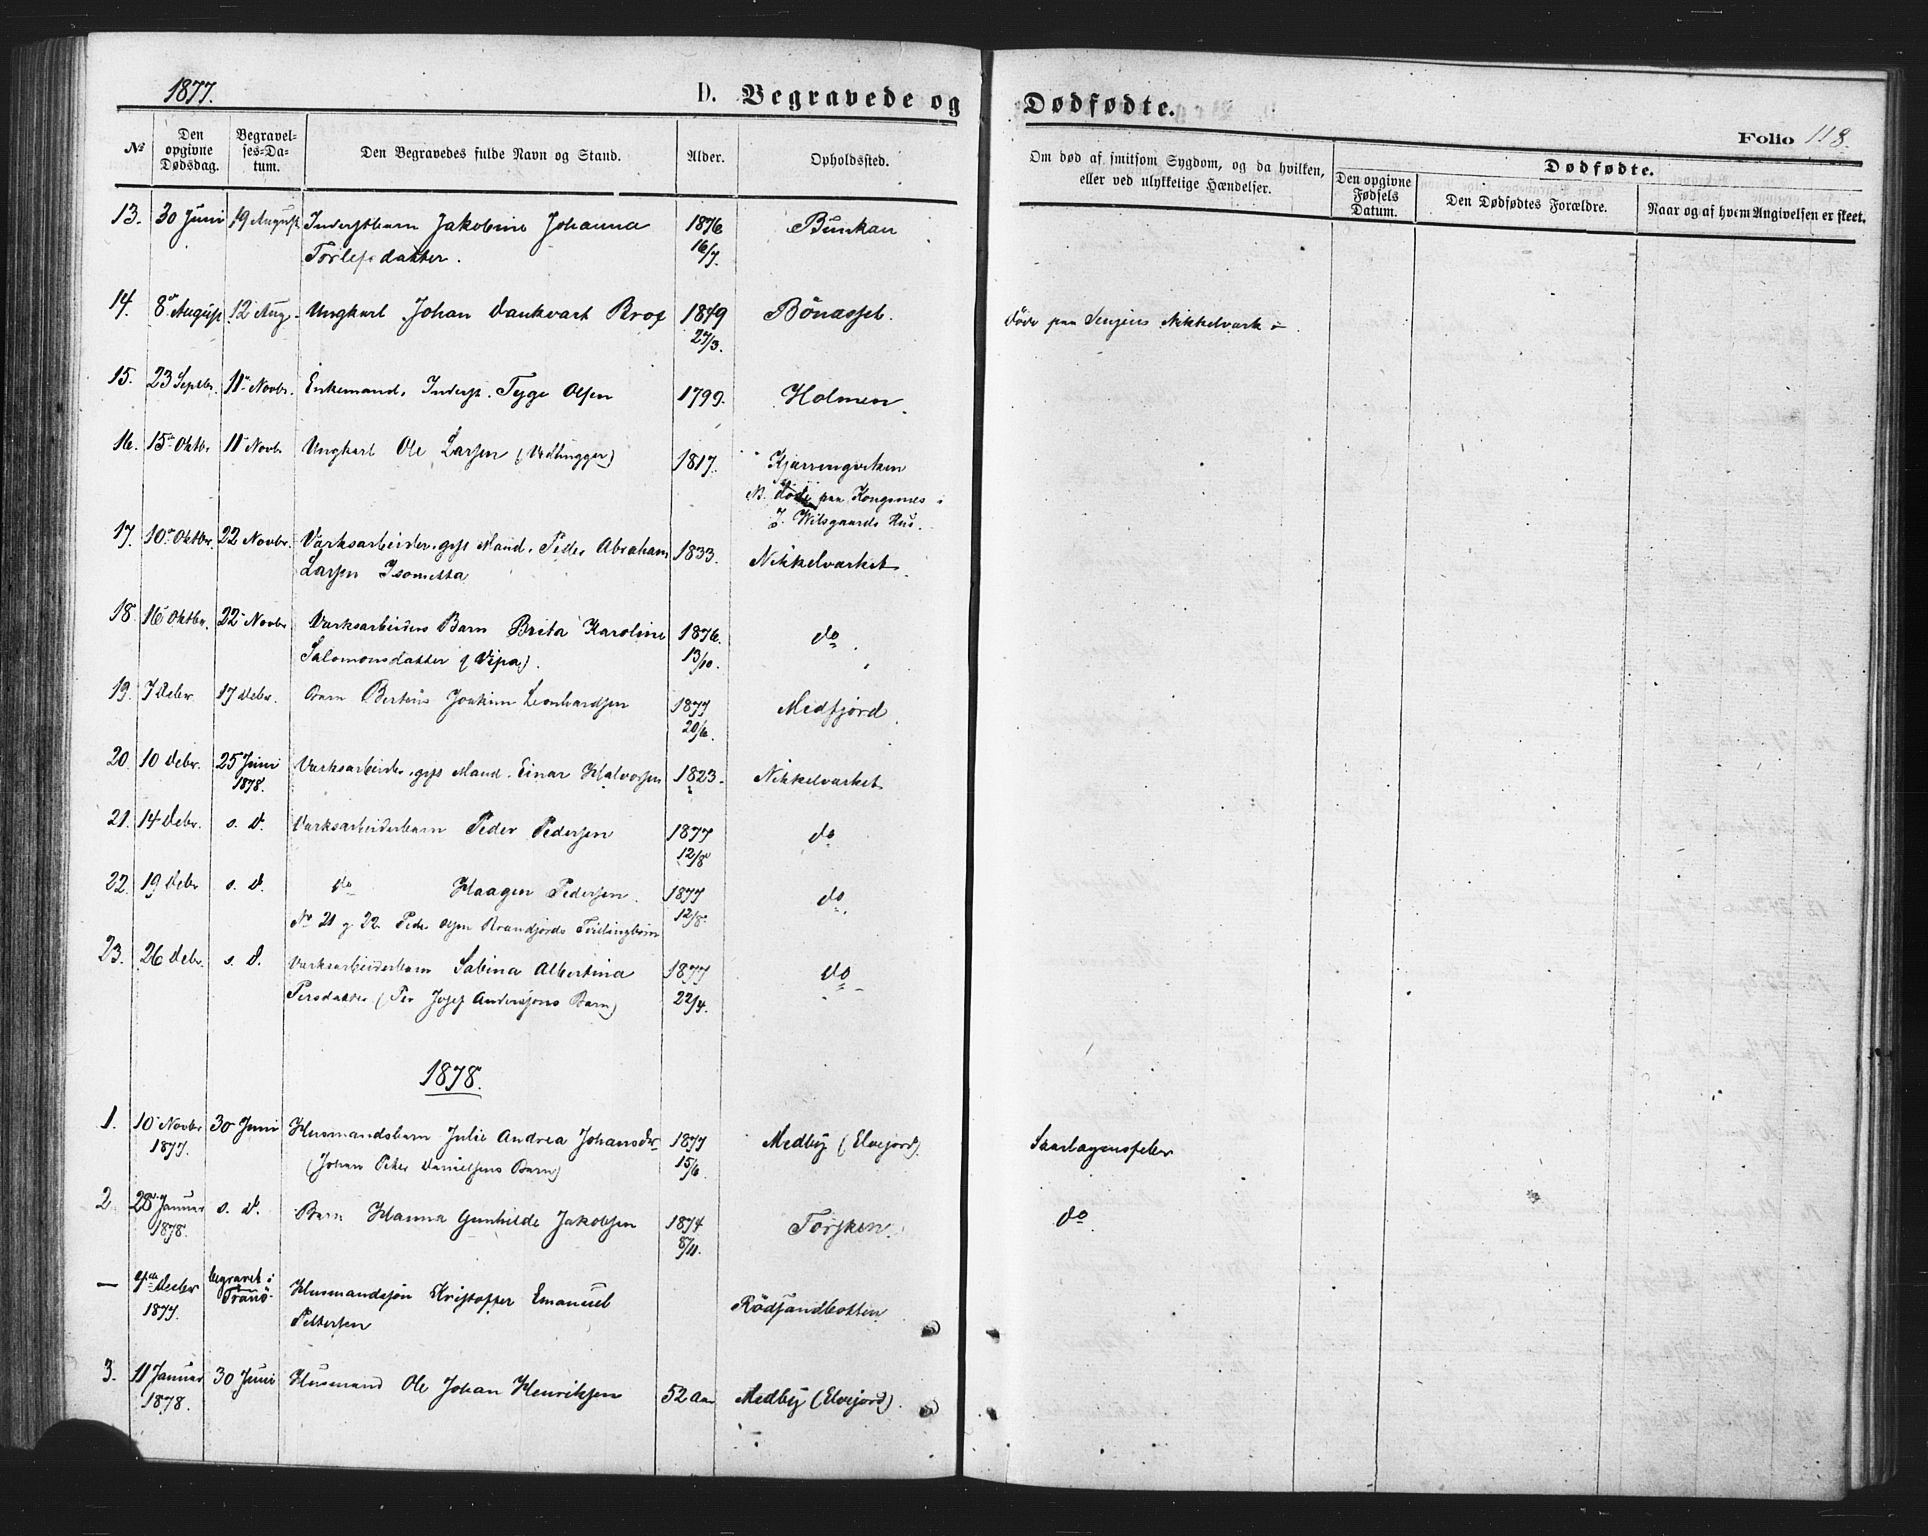 1877.
D. Begravede og Dødfødte.
Folio 118.
No
Den opgivne Dødsdag.
Begravel-ses-Da-tum.
Den Begravedes fulde Navn og Stand.
Alder.
Opholdssted.
Om død af smitsom Sygdom, og da hvilken, eller ved ulykkelige Hændelser.
Dødfødte.
Den opgivne Fødsels Datum.
Den Dødfødtes Forældre.
Naar og af hvem Angivelsen er skeet.
13. 30 Juni 19 August Inderstbarn Jakobine Johanna 1876 Bunkan
Torlefsdatter. 16/7
14. 8de August 12 Aug. Ungkarl Johan Dankvart Brox 1849 Bönasset. döde paa Senjens Nikkelværk
27/3.
15. 23 Septbr. 11te Novbr. Enkemand. Inderst. Tyge Olsen 1799. Holmen.
16. 15de Oktbr. 11te Novbr Ungkarl Ole Larsen (Vedhugger) 1817. Kjærringviken
N. døde paa Kongsnes i
J. Wilsgaards Hus.
17. 10de Oktbr. 22 Novbr. Værksarbeider. gift Mand. Peder Abraham 1833. Nikkelværket.
Larsen Isometta
18. 16de Oktbr. 22 Novbr Værksarbeiders Barn Brita Karoline 1876. do
Salomonsdatter (Vipa). 13/10.
19. 7 Debr 17 Debr. Barn Bertéus Joakim Leonhardsen 1877 Medfjord.
20/6.
20. 10 Debr. 25 Juni Værksarbeider. gift Mand. Einar Halvorsen 1823. Nikkelværket
1878.
21. 14 Debr. s. D. Værksarbeiderbarn Peder Pedersen 1877 do
12/8
22. 19 Debr s. D. do Haagen Pedersen. 1877 do.
12/8.
No 21 og 22 Peder Olsen Brandfjords Tvillingbörn
23. 26 Debr. s. D. Værksarbeiderbarn Sabina Albertina 1877 do
Persdatter (Per Josef Anderssons Barn) 22/4.
1878.
1. 10 Novbr 30 Juni Husmandsbarn Julie Andrea Johansdr 1877 Medby (Elvejord). Skarlagensfeber
1877. (Johan Peter Danielsens Barn) 15/6.
2 28de Januar s. D. Barn Hanna Gunhilde Jakobsen 1874 Torsken. do.
1878. 8/11.
— 4de Decbr begravet i Husmandsøn Kristoffer Emanuel Rödsandbotten
1877. Tranö. Pettersen
3. 11 Januar 30 Juni Husmand Ole Johan Henriksen 52 Aar Medby (Elvejord).
1878.